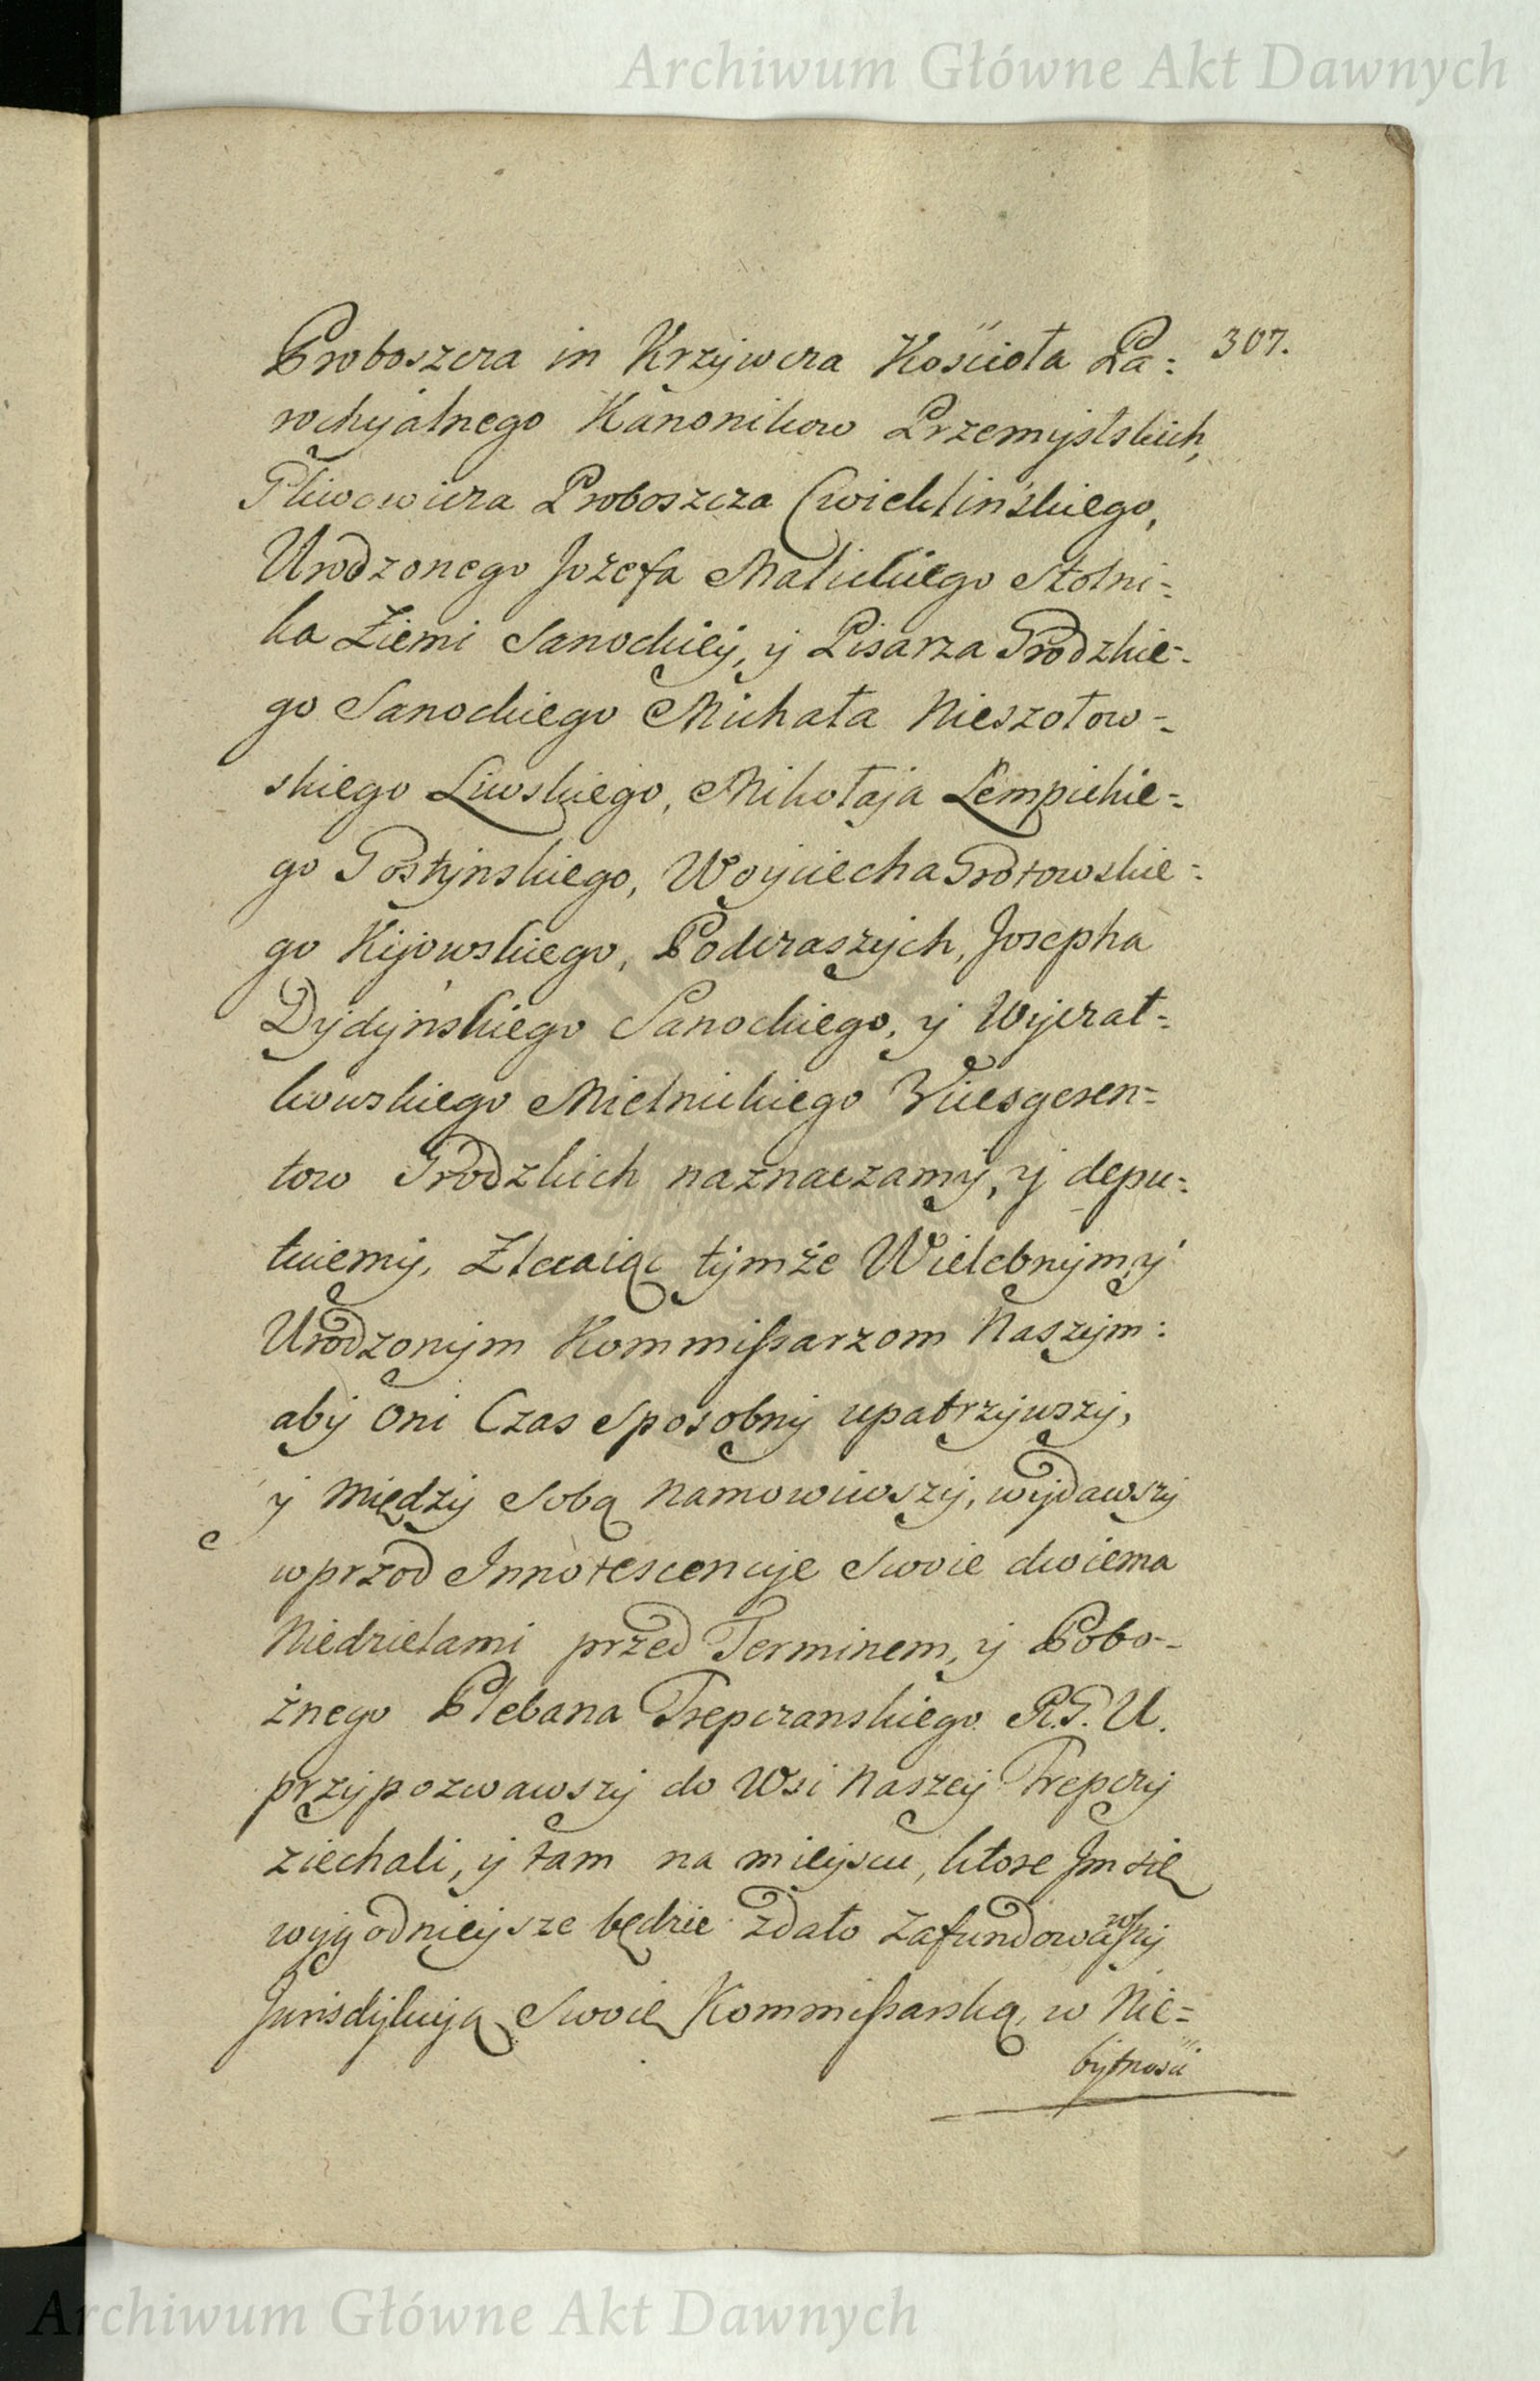 Archiwum Główne Akt Dawnych
307.
Proboszcza in Krzywcza Kościoła Pa:
rochyalnego Kanonikow Przemyslskich,
Proboszcza Cwieklińskiego,
Urodzonego Jozefa Malickiego Stolni=
ka Ziemi Sanockiey, y Pisarza Grodzkie=
go Sanockiego Michała Nieszołow=
skiego Liwskiego, Mikołaja Lempickie=
go Gostynskiego, Woyciecha Grotowskie=
go Kijowskiego, Podczaszych, Josepha
Dydyńskiego Sanockiego, y Wyczał=
kowskiego Mielnickiego Vicesgeren=
tow Grodzkich naznaczamy, y depu=
tuiemy, Zlecaiąc tymże Wielebnym y
Urodzonym Kommissarzom Naszym:
aby oni Czas sposobny upatrzywszy,
y między sobą namowiwszy, wydawszy
wprzod Innotescencye swoie dwiema
Niedzielami przed Terminem, y Pobo=
żnego Plebana Trepczanskiego R. G. U.
przypozwawszy do Wsi Naszey Trepczy
ziechali, y tam na mieyscu, ktore Jm się
wygodnieysze będzie zdało zafundowawszy
Jurisdykcyą swoię Kommissarską, w Nie=
bytności
Archiwum Główne Akt Dawnych